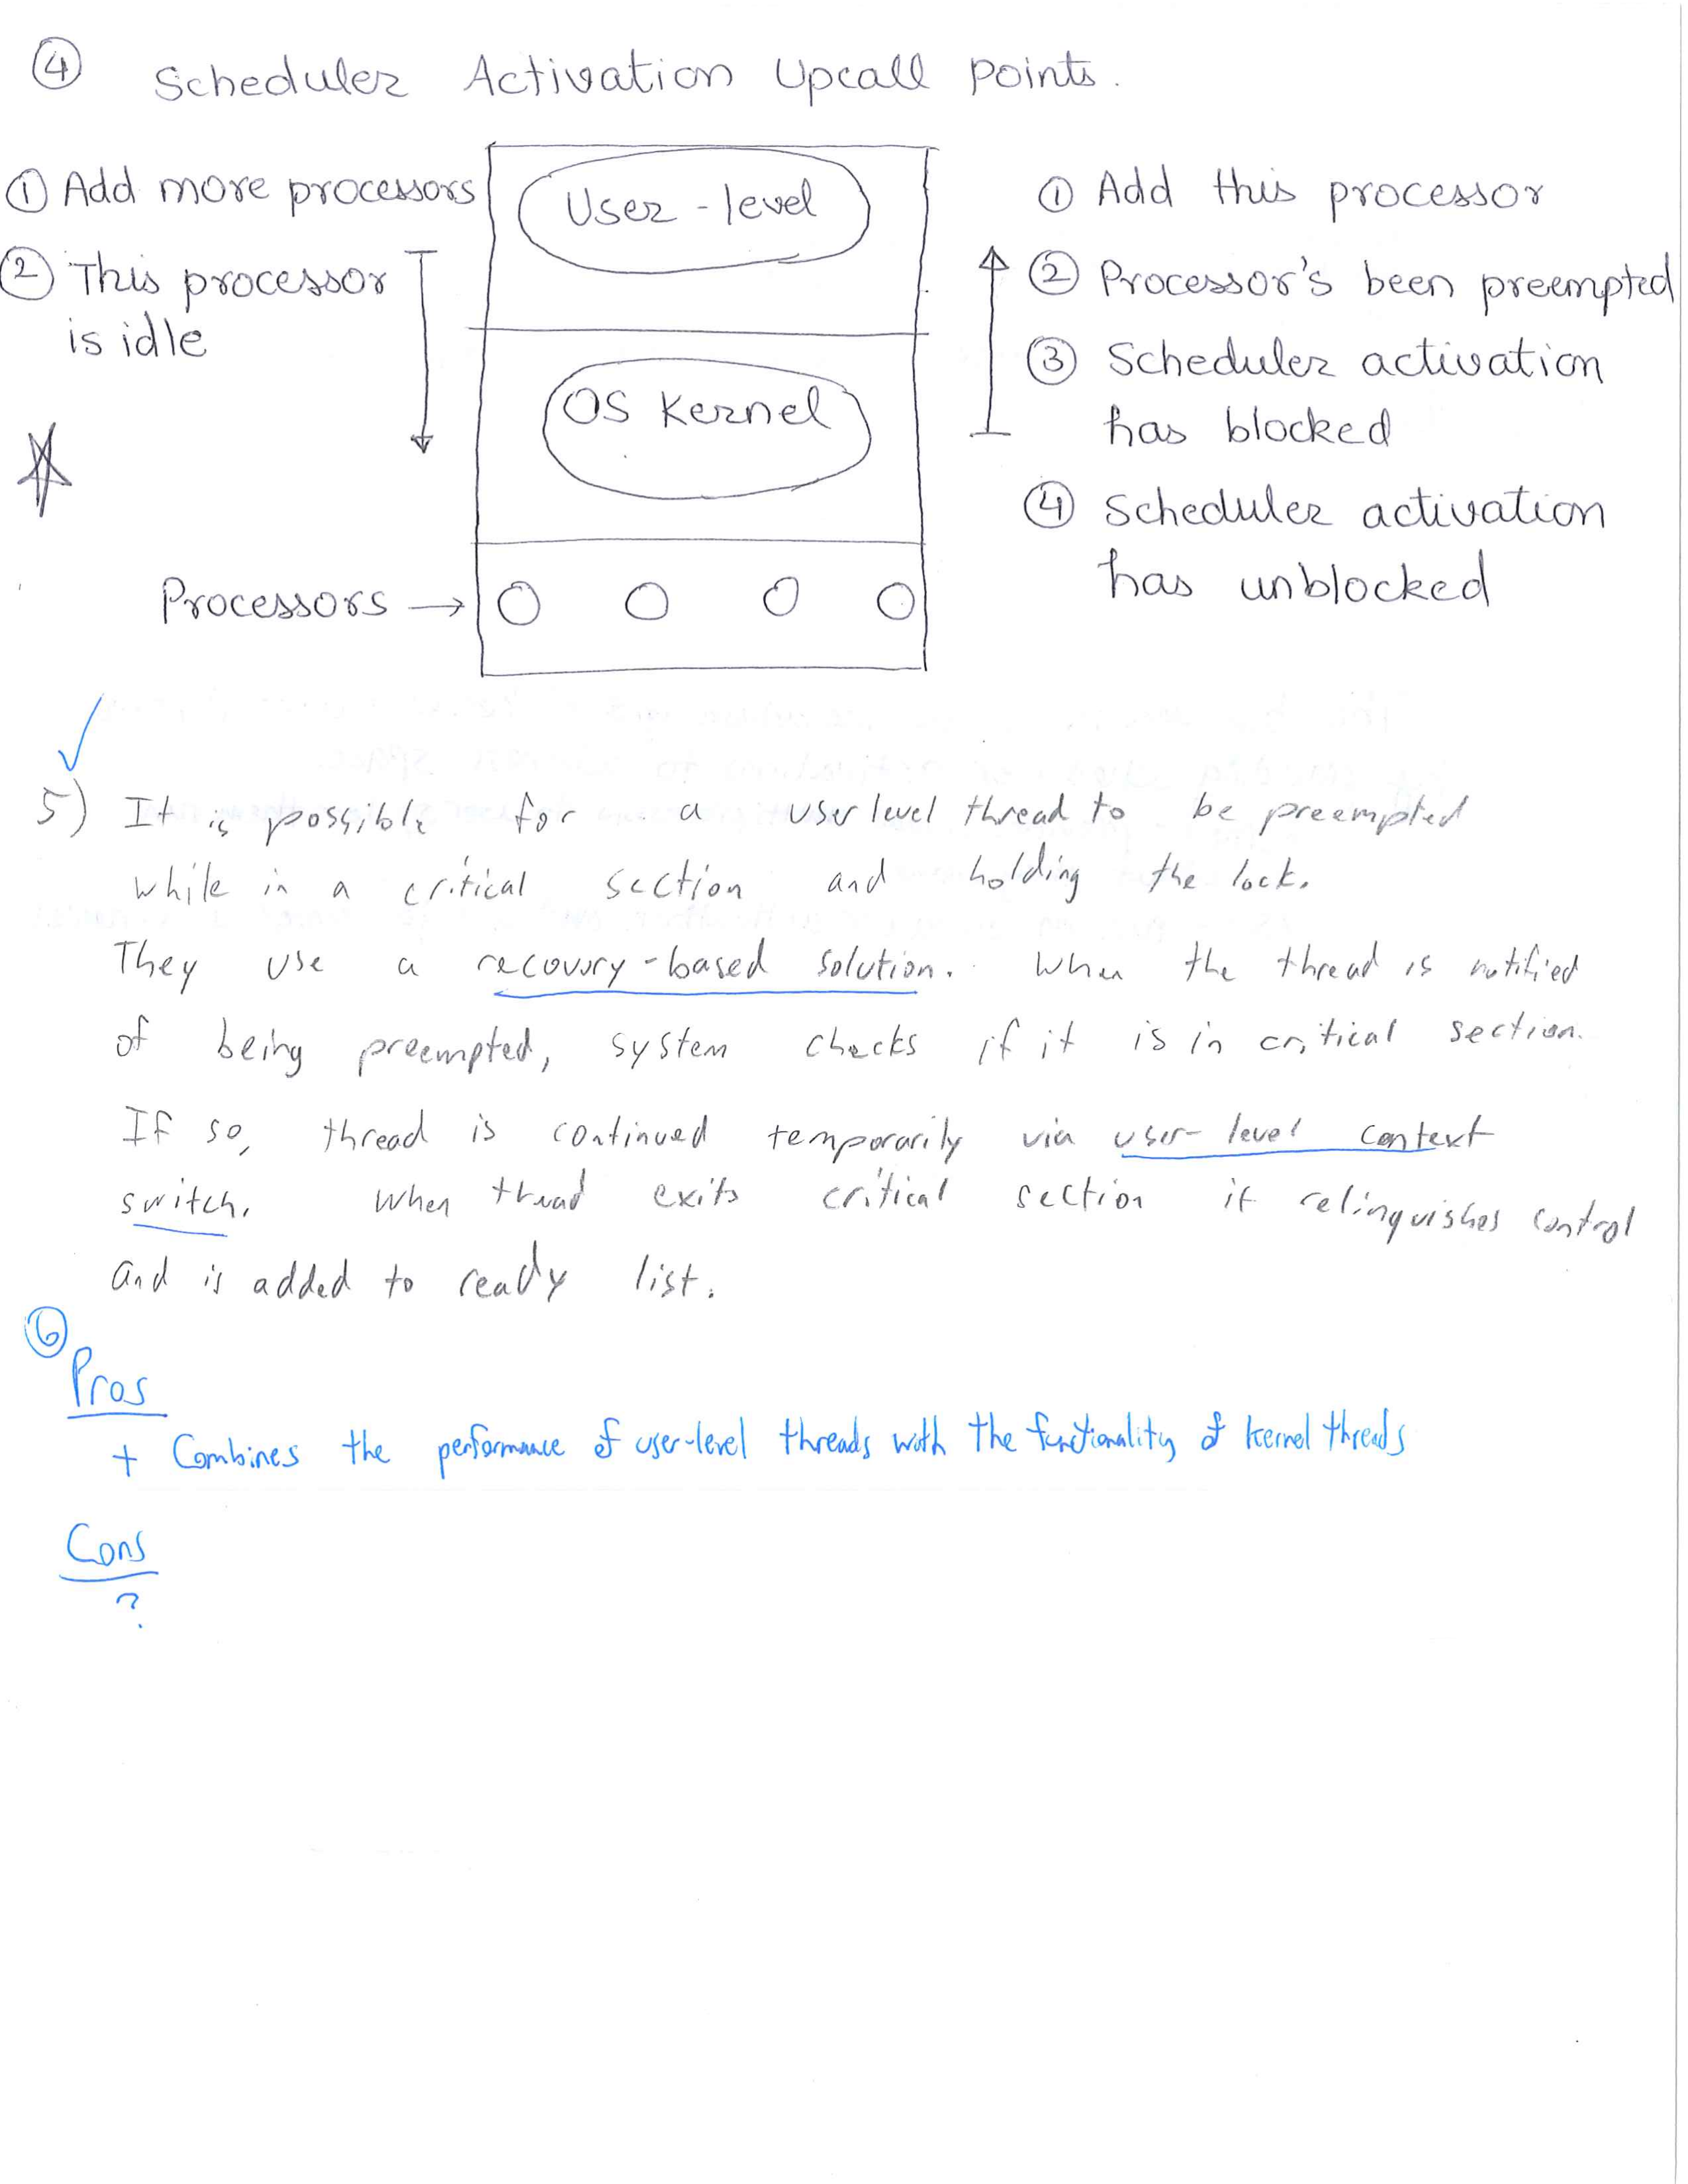 ④ Scheduler Activation Upcall Points.
① Add more processors
② This processor
is idle
User-level
OS Kernel
Processors →
① Add this processor
② Processor's been preempted
③ Scheduler activation
has blocked
④ Scheduler activation
has unblocked
5) It is possible for a user level thread to be preempted
while in a critical section and holding the lock.
They use a recovery-based solution. When the thread is notified
of being preempted, system checks if it is in critical section.
If so, thread is continued temporarily via user-level context
switch. When thread exits critical section it relinquishes control
and is added to ready list.
⑥
Pros
+ Combines the performance of user-level threads with the functionality of kernel threads
Cons
?